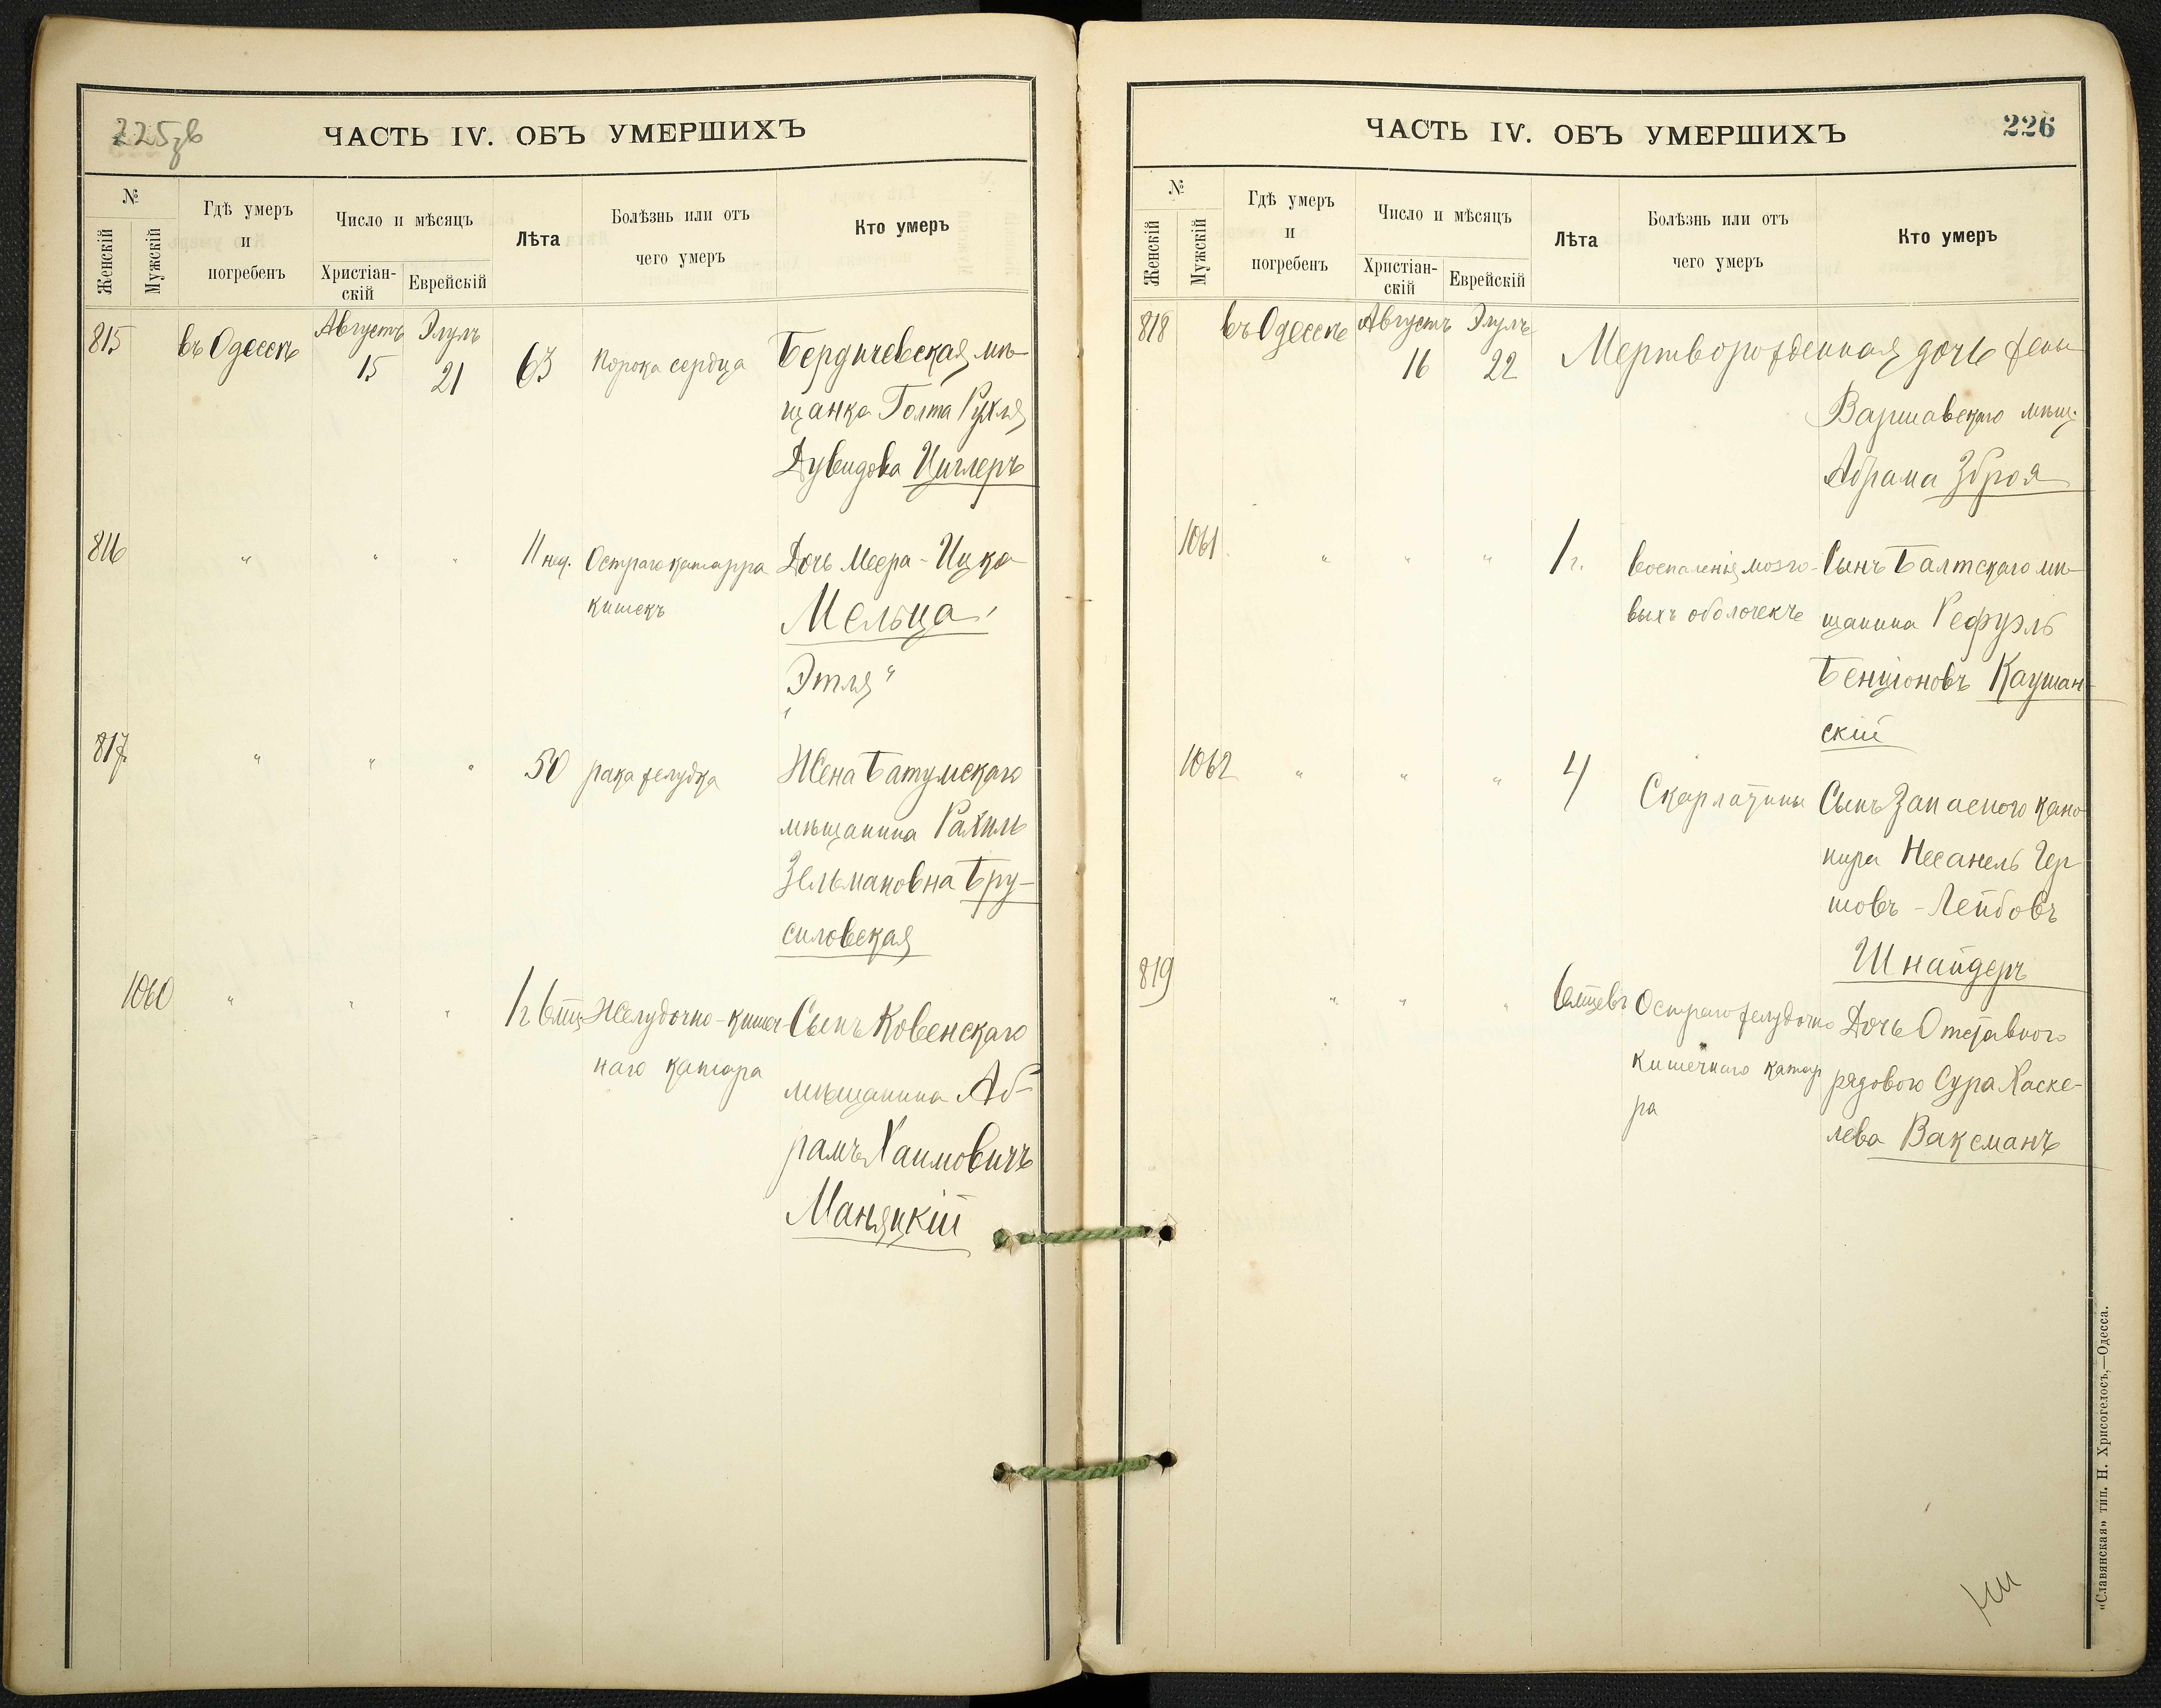 225зв
ЧАСТЬ IV. ОБЪ УМЕРШИХЪ
№
Женскій
Мужскій
Гдѣ умеръ
и
погребенъ
Число и мѣсяцъ
Христіан-
скій
Еврейскій
Лѣта
Болѣзнь или отъ
чего умеръ
Кто умеръ
815 въ Одессѣ Августъ Элулъ
15 21 63 Порока сердца Бердичевская мѣ-
щанка Голта Рухля
Дувидова Циглеръ
816 " " " 11 нед. Остраго катарра Дочь Меера-Ицка
кишекъ Мельца
Этля"
817 " " " 50 рака желудка Жена Батумскаго
мѣщанина Рахиль
Зельмановна Бру-
силовская
1060 " " " 1 г 6 мц Желудочно-кишеч- Сынъ Ковенскаго
наго катара мѣщанина Аб-
рамъ Хаимовичъ
Маняцкій
226
ЧАСТЬ IV. ОБЪ УМЕРШИХЪ
№
Женскій
Мужскій
Гдѣ умеръ
и
погребенъ
Число и мѣсяцъ
Христіан-
скій
Еврейскій
Лѣта
Болѣзнь или отъ
чего умеръ
Кто умеръ
818 въ Одессѣ Августъ Элулъ
16 22 Мертворожденная дочь жены
Варшавскаго мѣщ.
Абрама Зброя
1061 " " " 1 г. Воспаленія мозго- Сынъ Балтскаго мѣ-
выхъ оболочекъ щанина Рефуэль
Бенціоновъ Каушан-
скій
1062 " " " 4 Скарлатины Сынъ Запасного кано-
нира Несанель Гер-
шовъ-Лейбовъ
Шнайдеръ
819 " " " 6 мцевъ Остраго желудочно Дочь Отставного
кишечнаго катар рядового Сура Хаске-
ра лева Ваксманъ
«Славянская» тип. Н. Хрисогелосъ,—Одесса.